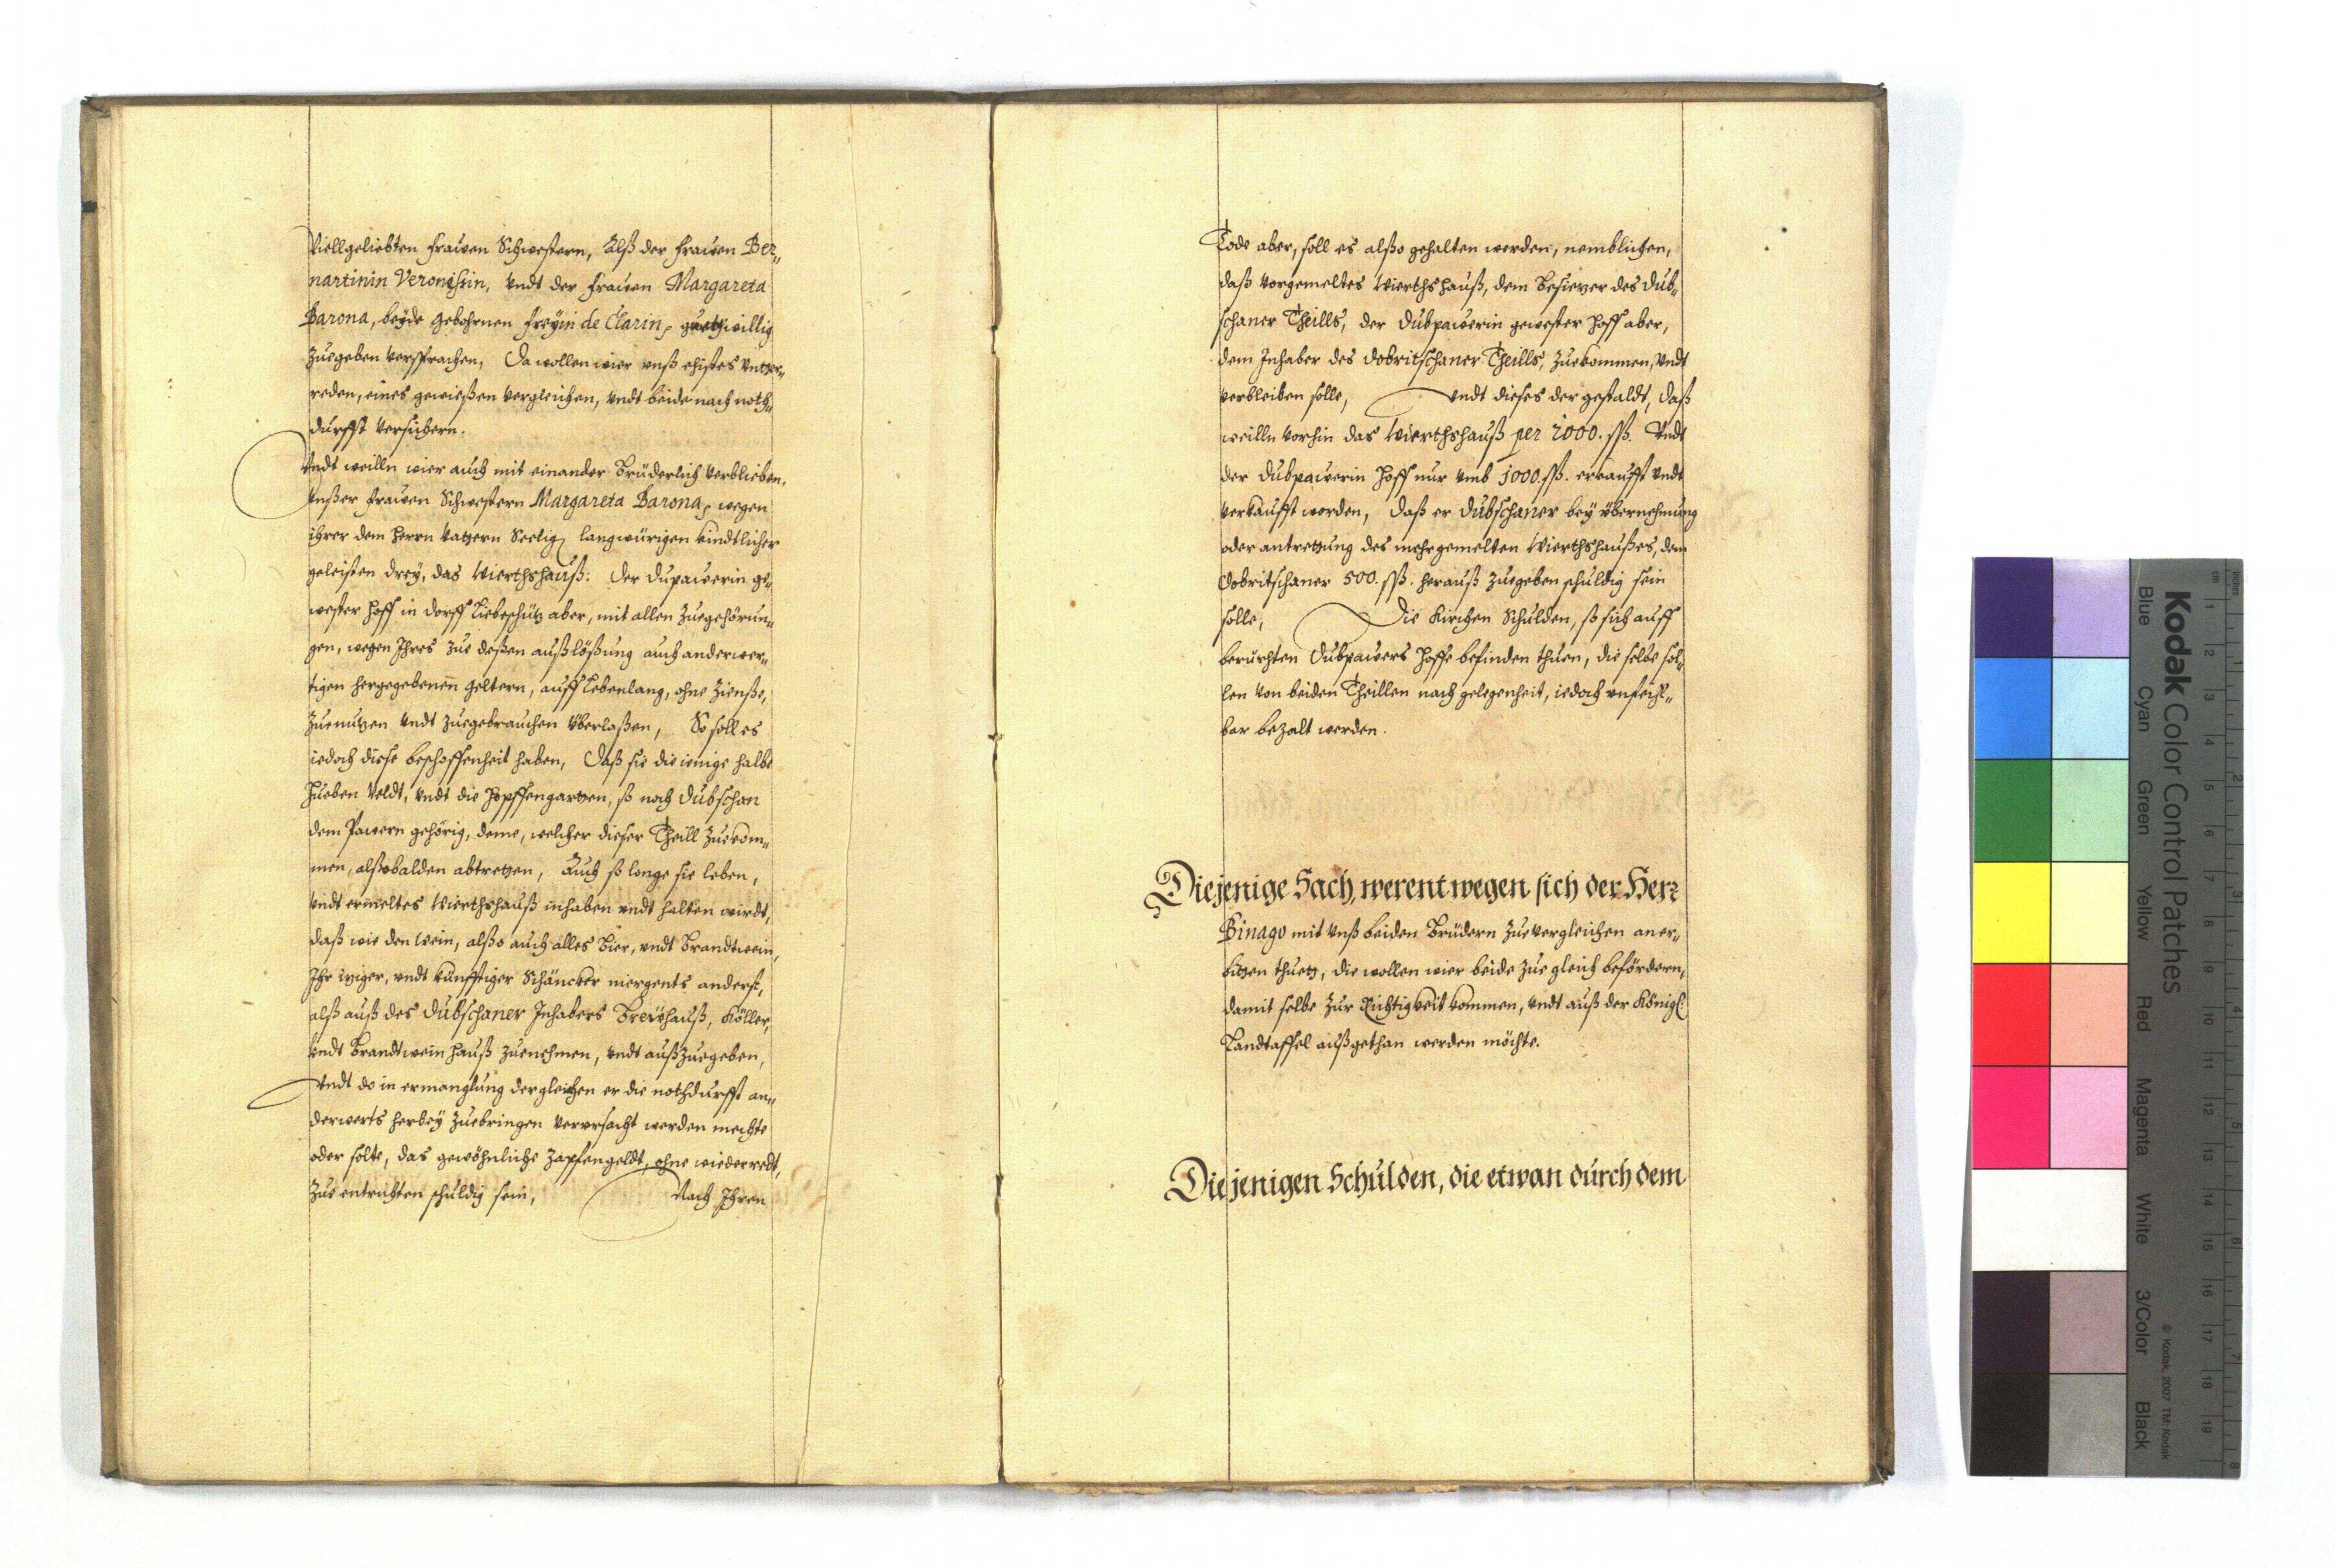 Viellgeliebten Frawen Schwestern, Alß der Frawen Ber„
nartinin Veronißin, Vndt der Frawen Margareta
Barona, beÿde gebohrnen Freÿin de Clarin, guettwillig
Zuegeben versprochen, Da wollen wier vnß ehistes vnter„
reden, eines gewießen Vergleichen, Vndt beide nach noth„
durfft Versichern.
Vndt weilln wier auch mit einander Brüderlich Verblieben,
Vnßer Frawen Schwestern Margareta Barona, wegen
ihrer dem Herrn Vattern Seelig langwürigen kindtlicher
geleisten Treÿ, das Wierthshauß: Der Dupawerin ge„
wester Hoff in dorff Liebeschitz aber, mit allen Zuegehörun„
gen, wegen Ihres Zue deßen außlößung auch anderwer„
tigen hergegebenen geltern, auff Lebenlang, ohne Zienße,
Zuenutzen Vndt Zuegebrauchen Vberlaßen, So soll es
iedoch diese beschaffenheit haben, Daß sie die ienige halbe
Hueben Veldt, Vndt die Hopffengarten, so nach Dubschan
dem Pawern gehörig, deme, welcher dieser Theill Zuekom„
men, alßobalden abtretten, Auch so lange sie leben,
Vndt ermeltes Wierthshauß inhaben vndt halten wirdt,
daß wie den Wein, alßo auch alles Bier, vndt Brandtwein,
Ihr itziger, vndt künfftiger Schäncker niergents anderst,
alß auß des Dubschaner Inhabers Breÿhauß, Köller,
Vndt Brandtwein Hauß Zuenehmen, Vndt außzuegeben,
Vndt do in ermanglung dergleichen er die nothdurfft an„
derwerts herbeÿ Zuebringen Verursacht werden mechte
oder solte, das gewöhnliche Zapfengeldt, ohne wiederredt,
Zue entrichten schuldig sein, Nach Ihren
Tode aber, soll es alßo gehalten werden, nemblichen,
daß vorgemeltes Wierthshauß, dem Besitzer des Dub„
schaner Theills, der Dubpawerin gewester Hoff aber,
dem Inhaber des Dobritschaner Theills, Zuekommen, Vndt
Verbleiben solle, Vndt dieses der gestaldt, Daß
weilln Vorhin das Wierthshauß per 2000. ßß. Vndt
der Dubpawerin Hoff nur vmb 1000. ßß. erkaufft Vndt
Verkaufft worden, Daß er Dubschaner beÿ übernehmung
oder antrettung des mehrgemelten Wierthshaußes, dem
Dobritschaner 500. ßß. herauß Zuegeben schuldig sein
solle, Die Kirchen Schulden, so sich auff
berührten Dubpawers Hoffe befinden thuen, die selbe sol„
len von beiden Theillen nach gelegenheit, iedoch vnfeihl„
bar bezalt werden.
Diejenige Sach, werentwegen sich der Herr
Binago mit vnß beiden Brüdern Zuevergleichen aner„
bitten thuett, die wollen wier beide Zue gleich befördern,
damit selbe Zur Richtigkeit kommen, Vndt auß der Königl:
Landtaffel außgethan werden möchte.
Diejenigen Schulden, die etwan durch dem
Kodak Color Control Patches
Blue Cyan Green Yellow Red Magenta White 3/Color Black
© Kodak, 2007 TM: Kodak